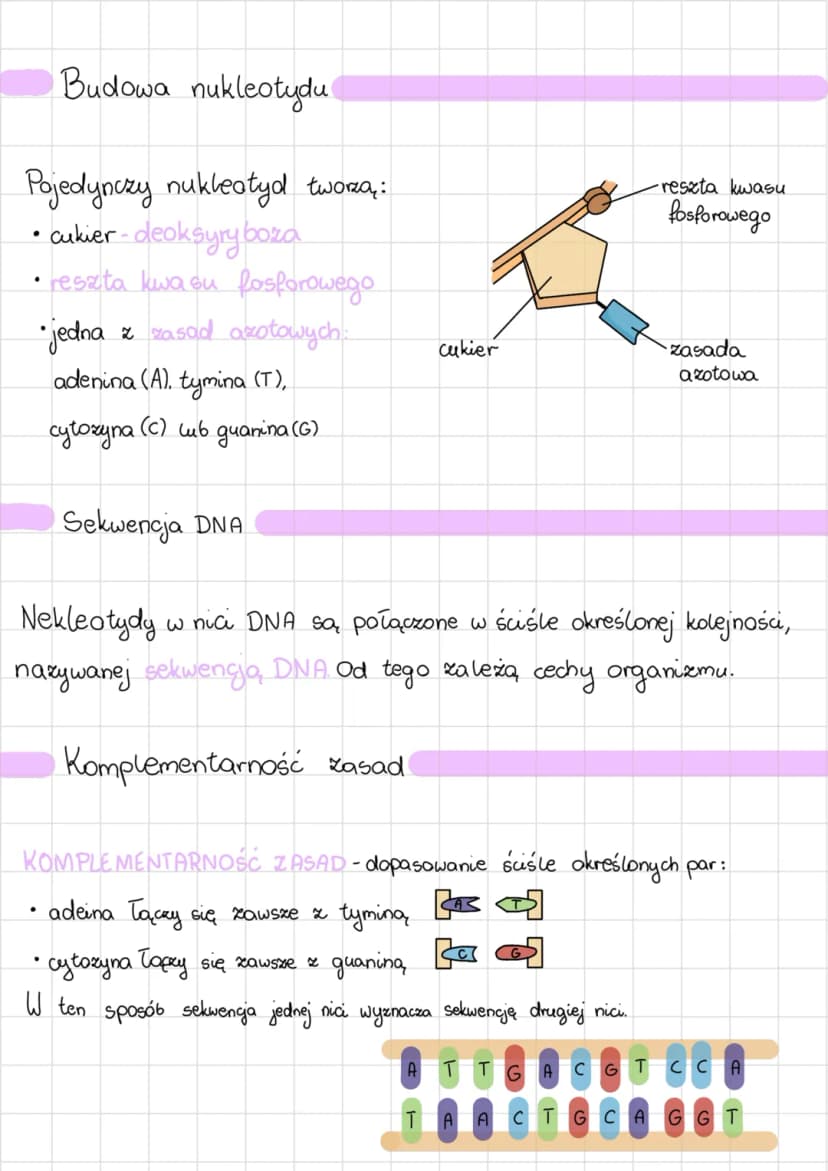 Budowa nukleotydu
Pojedynczy nukleotyd tworzą:
• cukier - deoksyryboza
• reszta kwasu fosforowego
• jedna z zasad azotowych:
adenina (A), tymina (T),
cytozyna (C) lub guanina (G)
reszta kwasu
fosforowego
cukier
zasada
azotowa
Sekwencja DNA
Nekleotydy w nici DNA są połączone w ściśle określonej kolejności,
nazywanej sekwencją DNA. Od tego zależą cechy organizmu.
Komplementarność zasad
KOMPLEMENTARNOŚĆ ZASAD - dopasowanie ściśle określonych par:
• adeina łączy się zawsze z tyminą A T
• cytozyna łączy się zawsze z guaniną C G
W ten sposób sekwencja jednej nici wyznacza sekwencję drugiej nici.
A T T G A C G T C C A
T A A C T G C A G G T